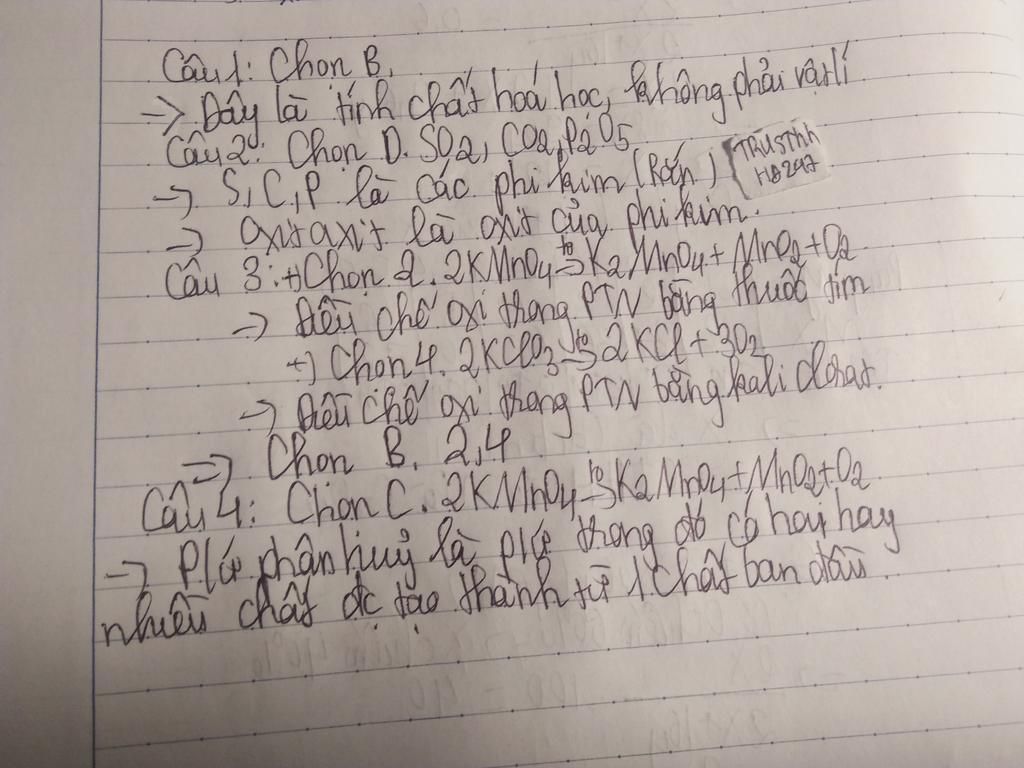 Câu 1: Chọn B.
-> Đây là tính chất hoá học, không phải vật lí
Câu 2: Chọn D. SO2, CO2, P2O5
-> S, C, P là các phi kim (Rắn)
TRUSTHH
HĐ247
-> oxit axit là oxit của phi kim.
Câu 3: +) Chọn 2. 2KMnO4 -to-> K2MnO4 + MnO2 + O2
-> Điều chế oxi trong PTN bằng thuốc tím
+) Chọn 4. 2KClO3 -to-> 2KCl + 3O2
-> Điều chế oxi trong PTN bằng kali clorat.
=> Chọn B. 2,4
Câu 4: Chọn C. 2KMnO4 -to-> K2MnO4 + MnO2 + O2
-> Pứ phân huỷ là pứ trong đó có hai hay
nhiều chất đc tạo thành từ 1 chất ban đầu.